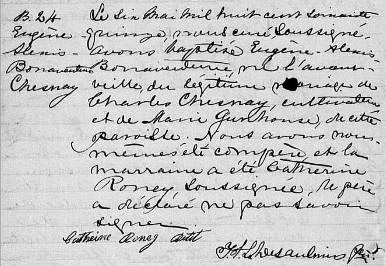 B. 24
Eugène
Alexis
Bonaventure
Chesnay
Le Six Mai Mil huit cent soixante
quinze, nous curé Soussigné,
avons baptisé Eugène Alexis
Bonaventure né l'avant
veille, du légitime mariage de
Charles Chesnay, cultivateur
et de Marie Gunhouse, de cette
paroisse. Nous avons nous
mêmes été compère et la
marraine a été Catherine
Roney Soussignée, le père
a déclaré ne pas savoir
signer.
Catherine Roney